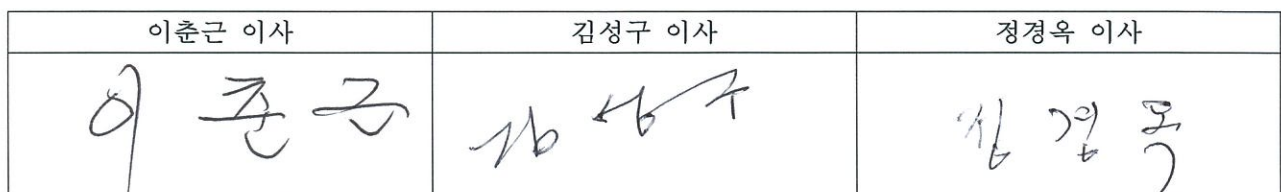 이춘근 이사 김성구 이사 정경옥 이사
이춘근 김성구 정경옥